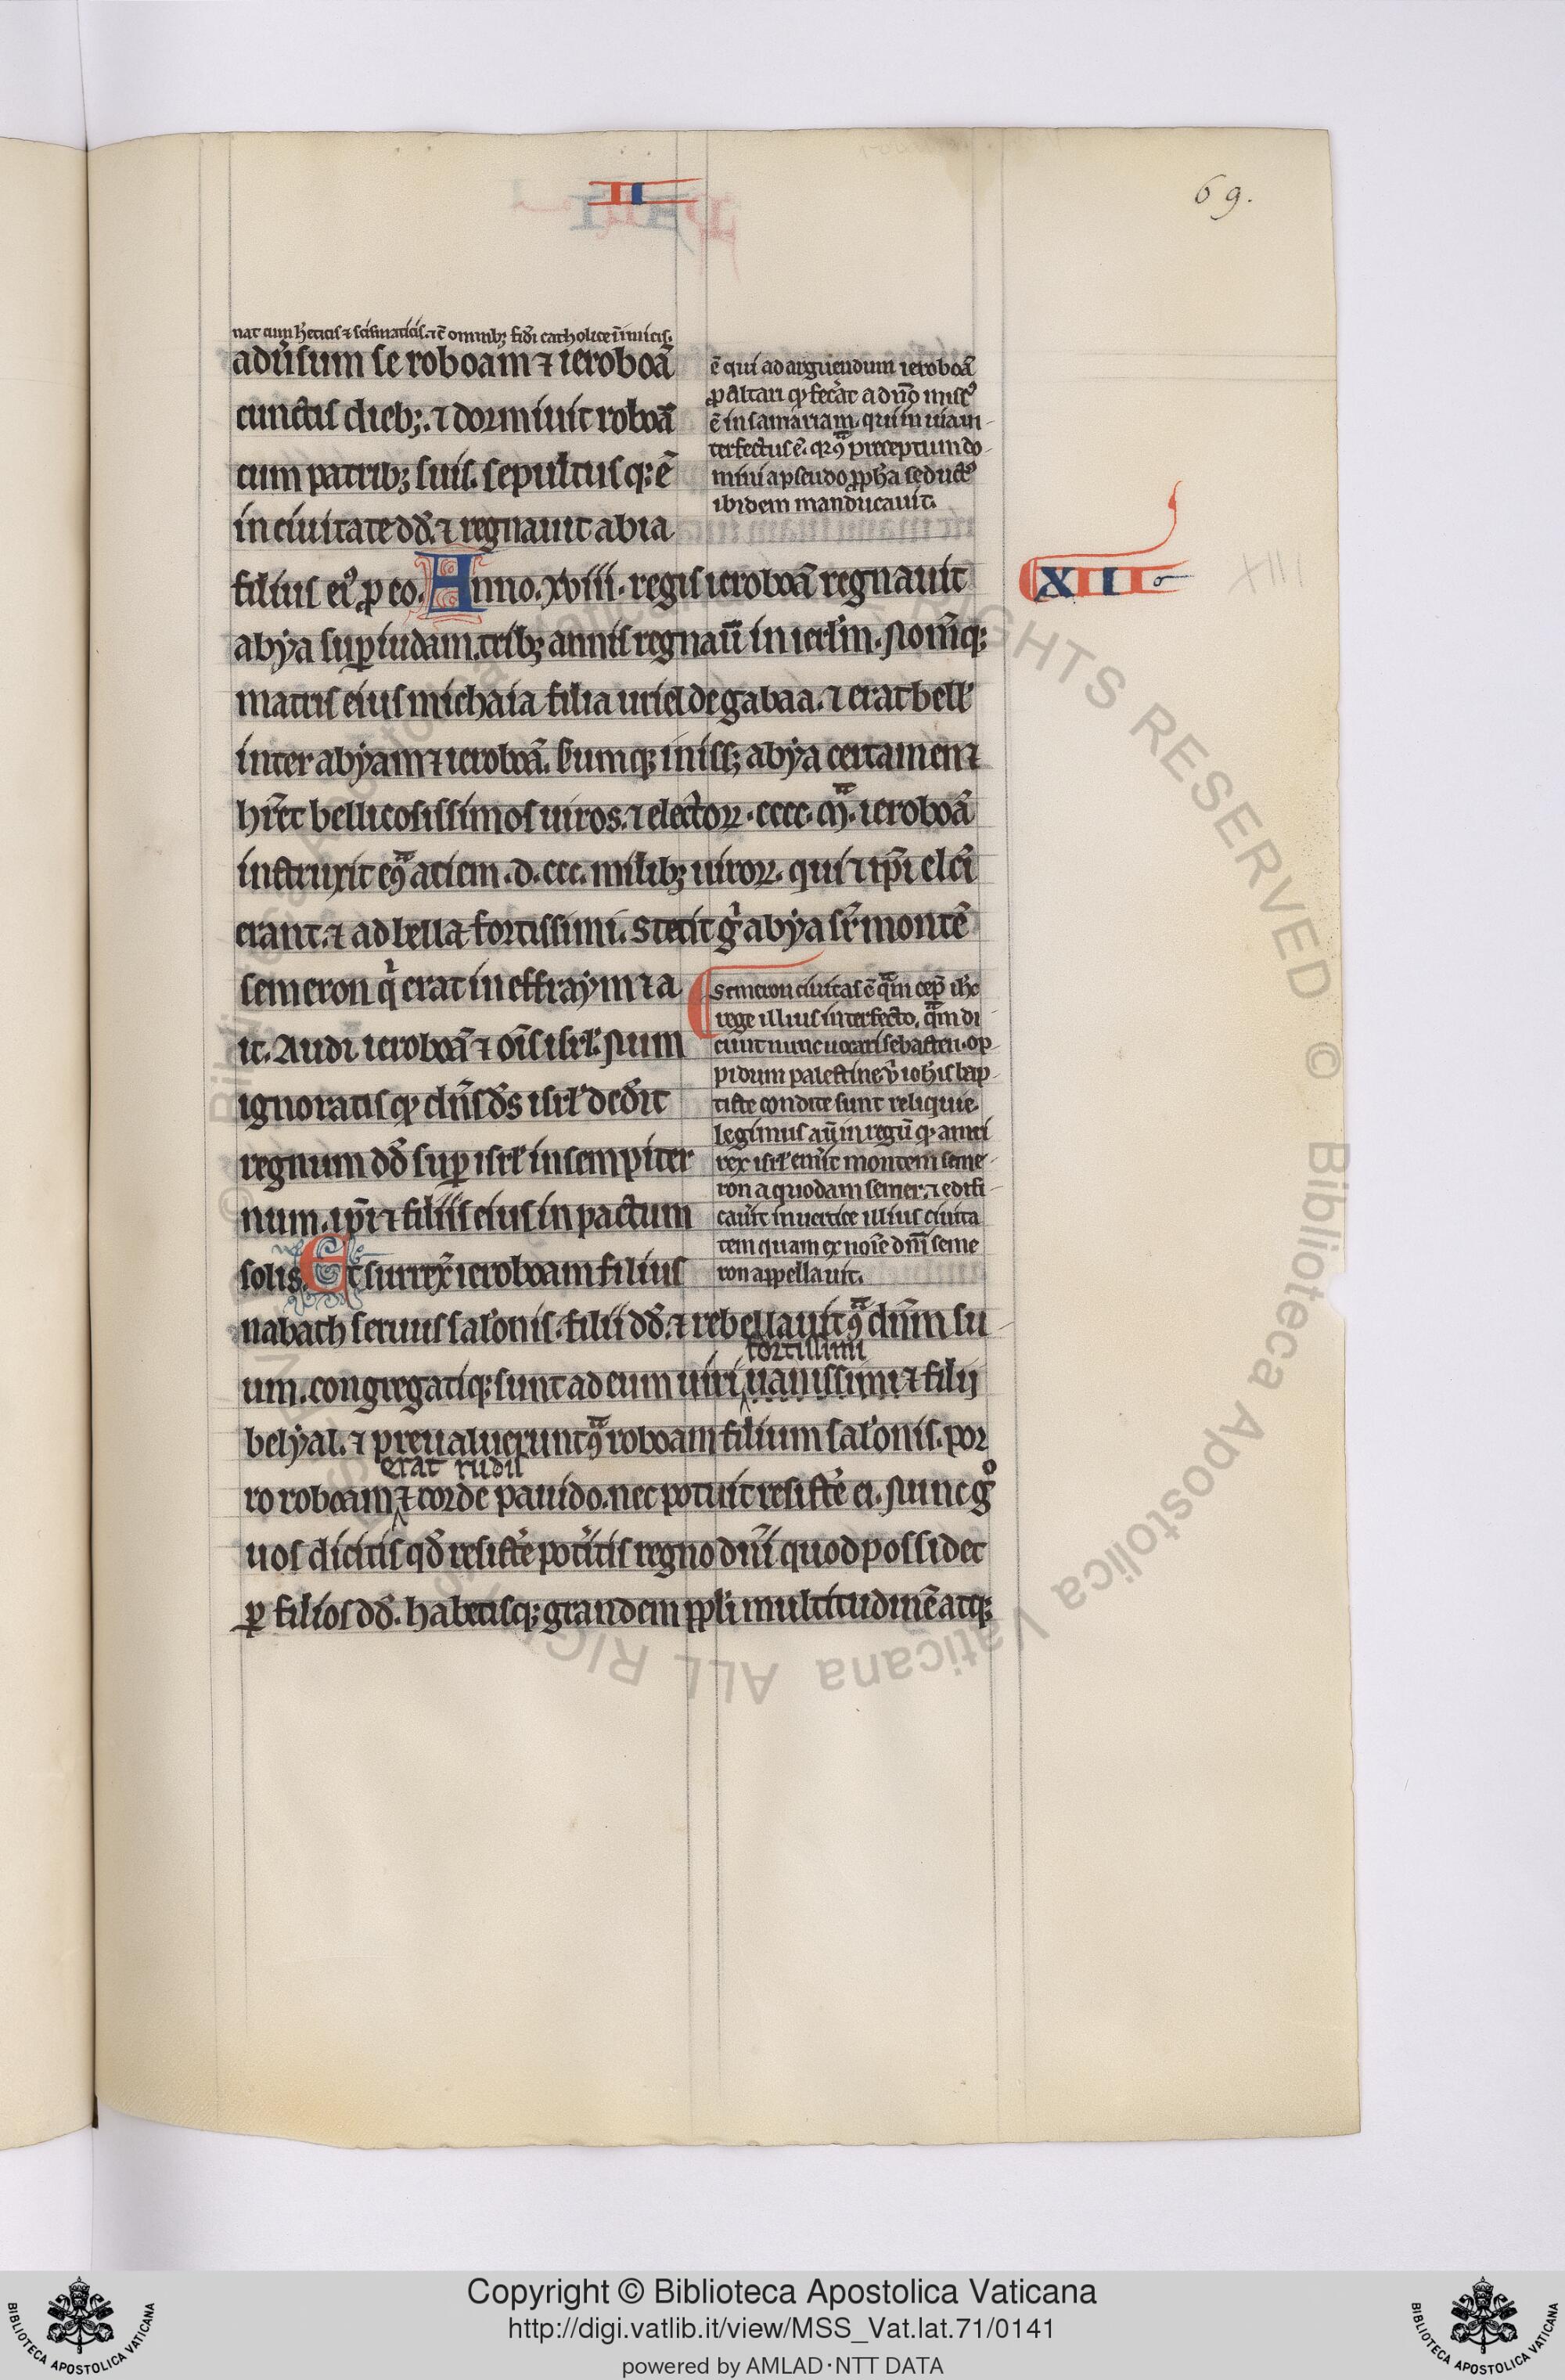 II
69.
nat cum h̄eticis ⁊ scismaticis. ⁊ c̄ omnibꝫ fidei catholice īimicis.
adūsum se roboam ⁊ ieroboā
cunctis diebꝫ. ⁊ dormiuit roboā
cum patribꝫ suis. sepultusqꝫ ē
in ciuitate dđ. ⁊ regnauit abia
filius eiꝰ ꝓ eo. Anno. xviii. regis ieroboā regnauit
abya suꝑ iudam. tribꝫ annis regnauī in ierl̄m. Nom̄qꝫ
matris eius michaia filia uriel de gabaa. ⁊ erat bell̄
inter abyam ⁊ ieroboā. Cumqꝫ inissꝫ abya certamen ⁊
hr̄et bellicosissimos uiros. ⁊ electoꝝ. cccc. m̄. ieroboā
instruxit ꝯᵃ aciem. d. ccc. milibꝫ uiroꝝ. qui ⁊ ip̄i elc̄i
erant. ⁊ ad bella fortissimi. Stetit gͥ abya sr̄ montē
semeron qͥ erat in effraym ⁊ a
it. Audi ieroboā ⁊ oīs isrl̄. Num
ignoratis qꝫ dn̄s ds̄ isrl̄ dedit
regnum dđ suꝑ isrl̄ in sempiter
num. ip̄i ⁊ filiis eius in pactum
solis. Et surrex̄ ieroboam filius
nabath seruus sal'onis. filii dđ. ⁊ rebellauit ꝯᵃ dn̄m su-
um. congregatiqꝫ sunt ad eum uiri uanissimi ⁊ filij
fortissimi
belyal. ⁊ preualuerunt ꝯᵃ roboam filium sal'onis. por
ro roboam ⁊ corde pauido. nec potuit resist'e ei. Nunc gͦ
erat rudis
uos dicitis qđ resist'e pot'itis regno dn̄i quod possidet
ꝑ filios dđ. habetisqꝫ grandem ppl̄i multitudinē atqꝫ
ē qui ad arguendum ieroboā
ꝓ altari qꝫ fec'at a dn̄o missꝰ
ē in samariam. qui in uia in-
terfectus ē. qꝛ ꝯᵃ preceptum do-
mini a pseudo ꝓph̄a seductꝰ
ibidem manducauit.
XIII
XIII
Semeron ciuitas ē qᵃm cep̄ ih̄c
rege illius interfecto. qᵃm di
cunt nunc uocari sebasten. op-
pidum palestine ū ioh̄is bap-
tiste condite sunt reliquie.
legimus aū in regū qꝫ amri
rex isrl̄ emit montem seme-
ron a quodam semer. ⁊ edifi-
cauit in uertice illius ciuita
tem quam ex noīe dn̄i seme
ron appellauit.
© Biblioteca Apostolica Vaticana ALL RIGHTS RESERVED
BIBLIOTECA APOSTOLICA VATICANA
Copyright © Biblioteca Apostolica Vaticana
http://digi.vatlib.it/view/MSS_Vat.lat.71/0141
powered by AMLAD·NTT DATA
BIBLIOTECA APOSTOLICA VATICANA